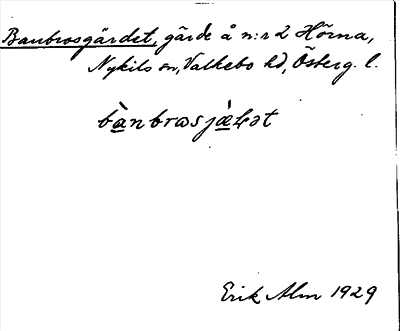 Banbrosgärdet, gärde å n:r 2 Hörna,
Nykils sn, Valkebo hd, Österg. l.
bànbrωsjæ̀ɽət
Erik Alm 1929